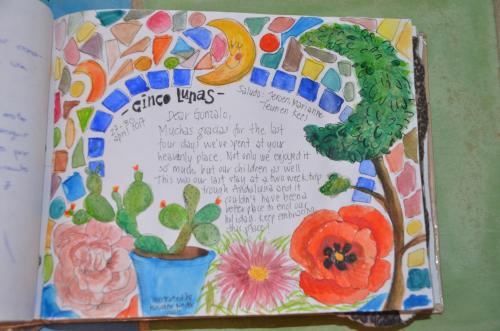 - Cinco Lunas -
22-30
april 2017
Saludo: Jeroen, Marianne
Teun en Kee!
Dear Gonzalo,
Muchas gracias for the last
four days we've spent at your
heavenly place. Not only we enjoyed it
so much but our children as well.
This was our last stay at a two week trip
trough Andalusia and it
couldn't have been a
better place to end our
holiday. Keep embracing
this place!
illustrated by